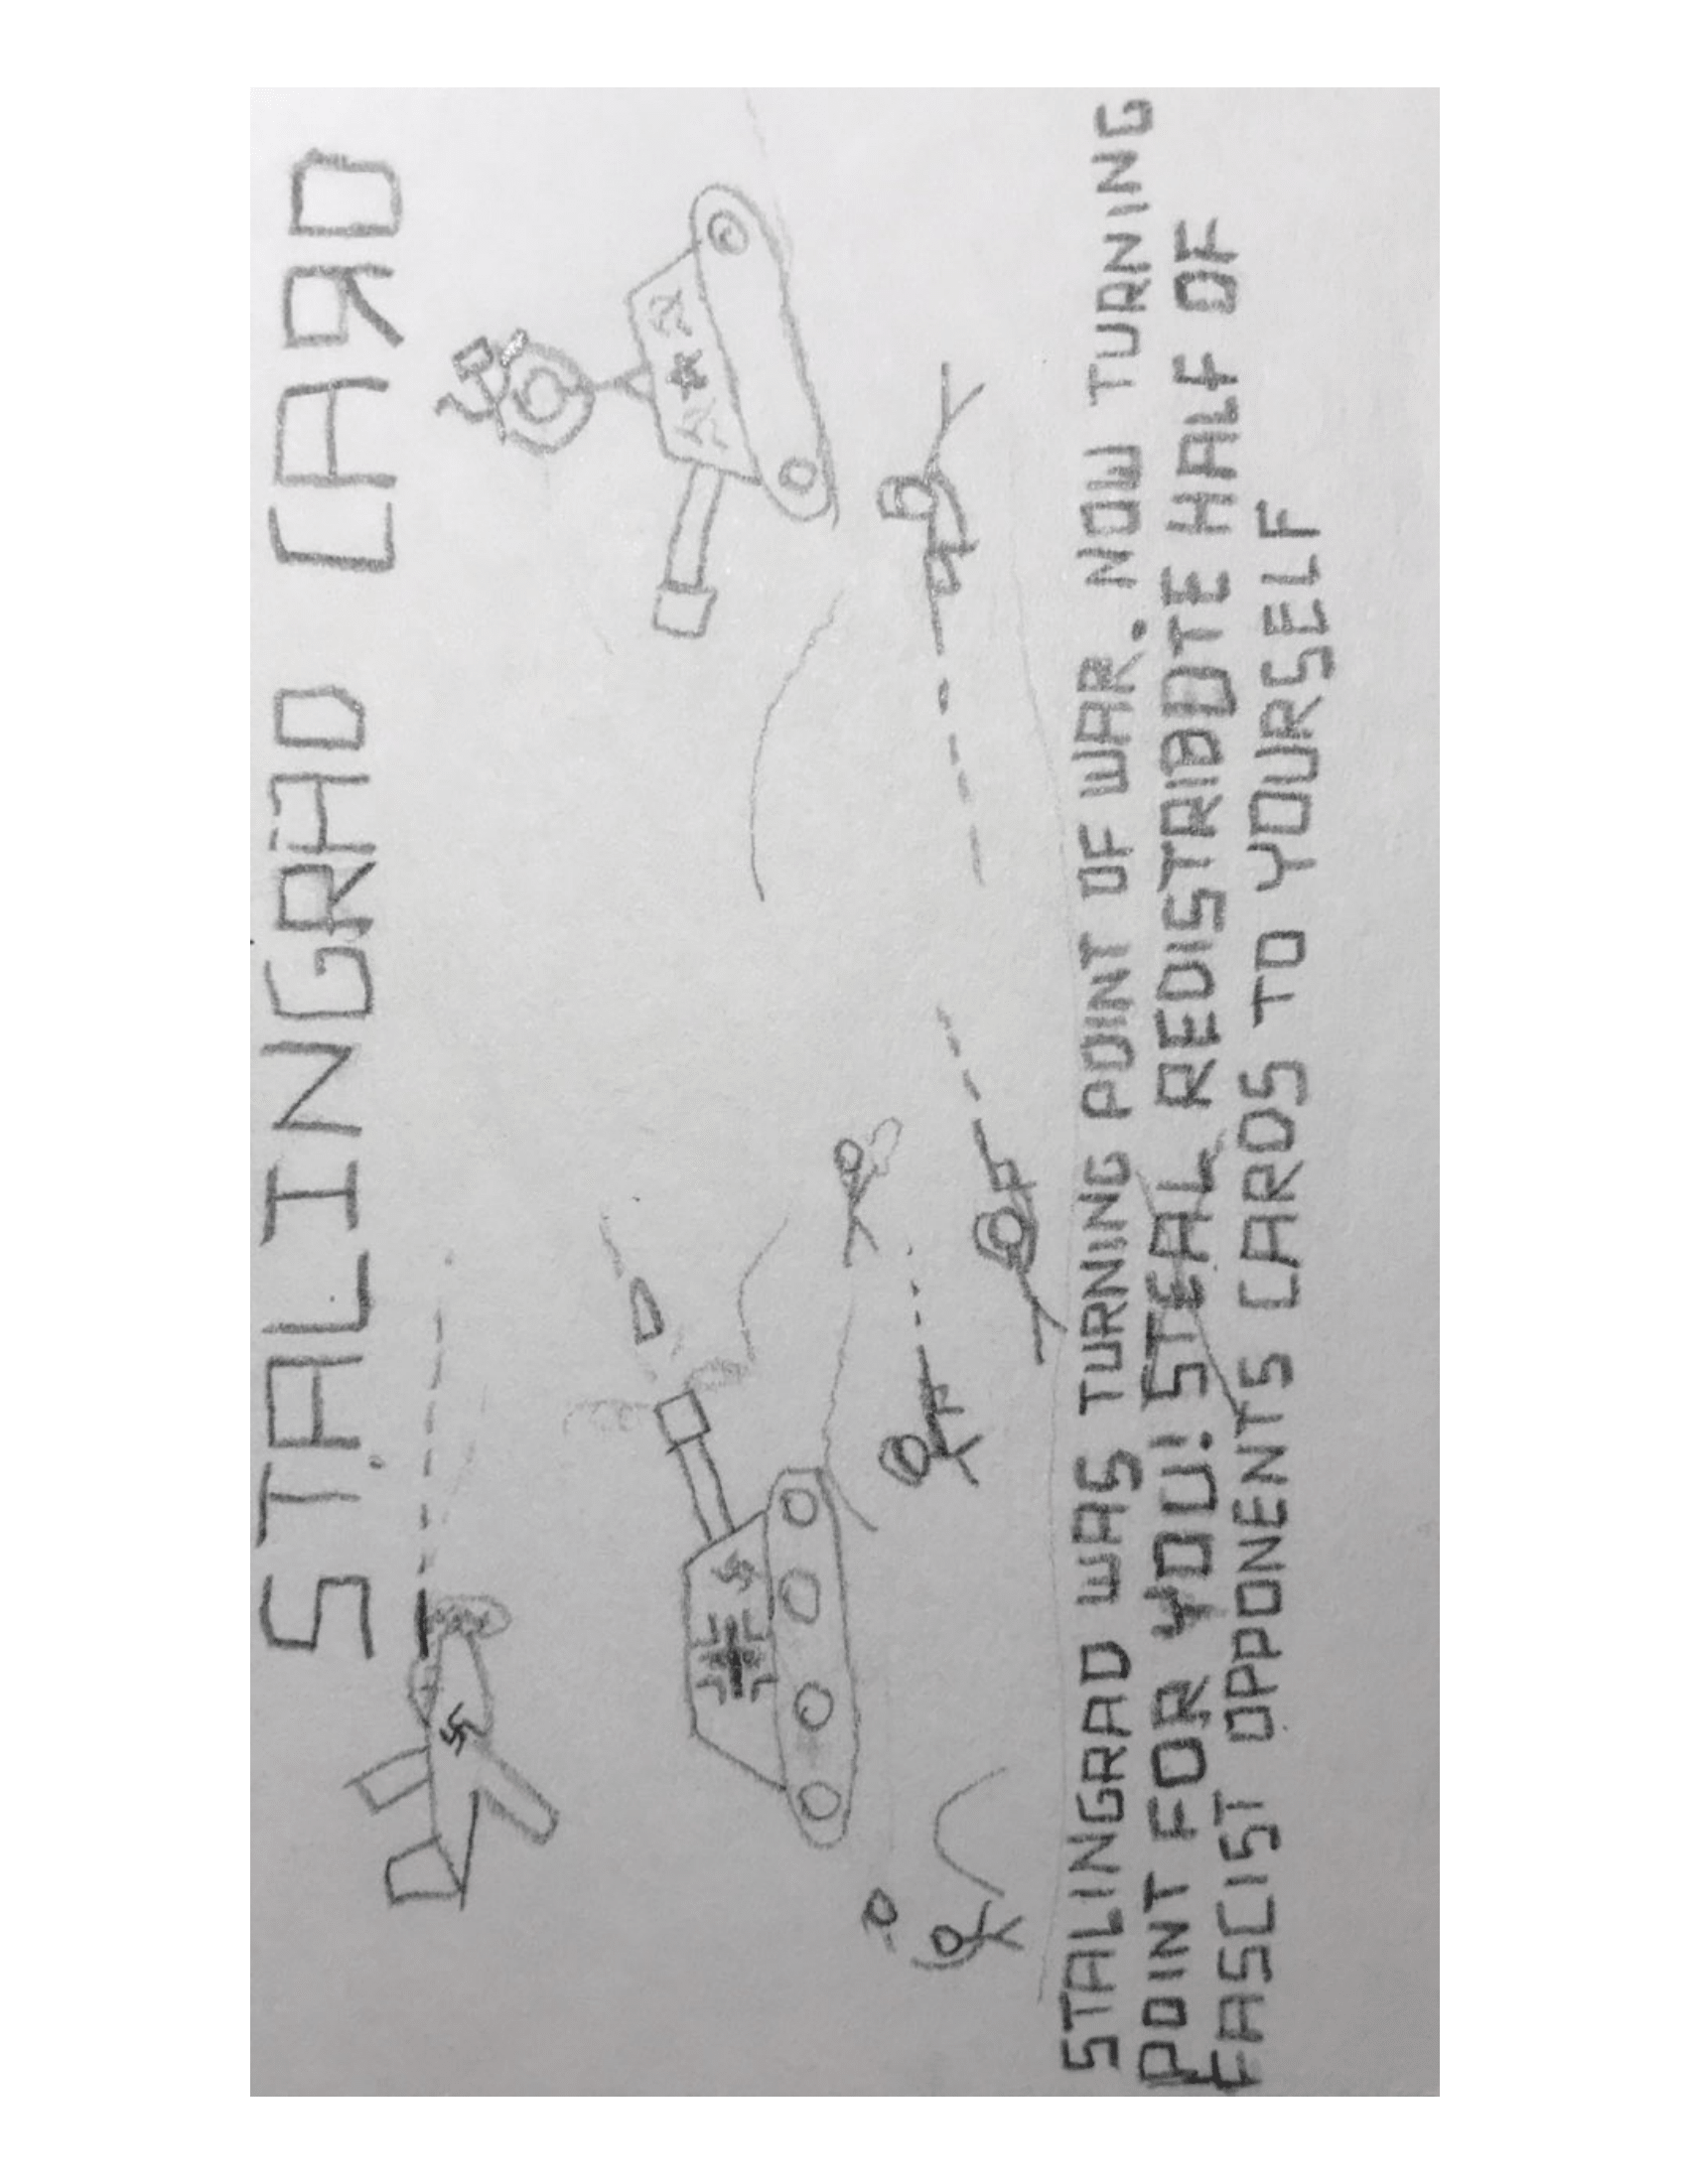 STALINGRAD CAЯD
STALINGRAD WAS TURNING POINT OF WAR. NOW TURNING
POINT FOR YOU! STEAL REDISTRIBUTE HALF OF
FASCIST OPPONENTS CARDS TO YOURSELF